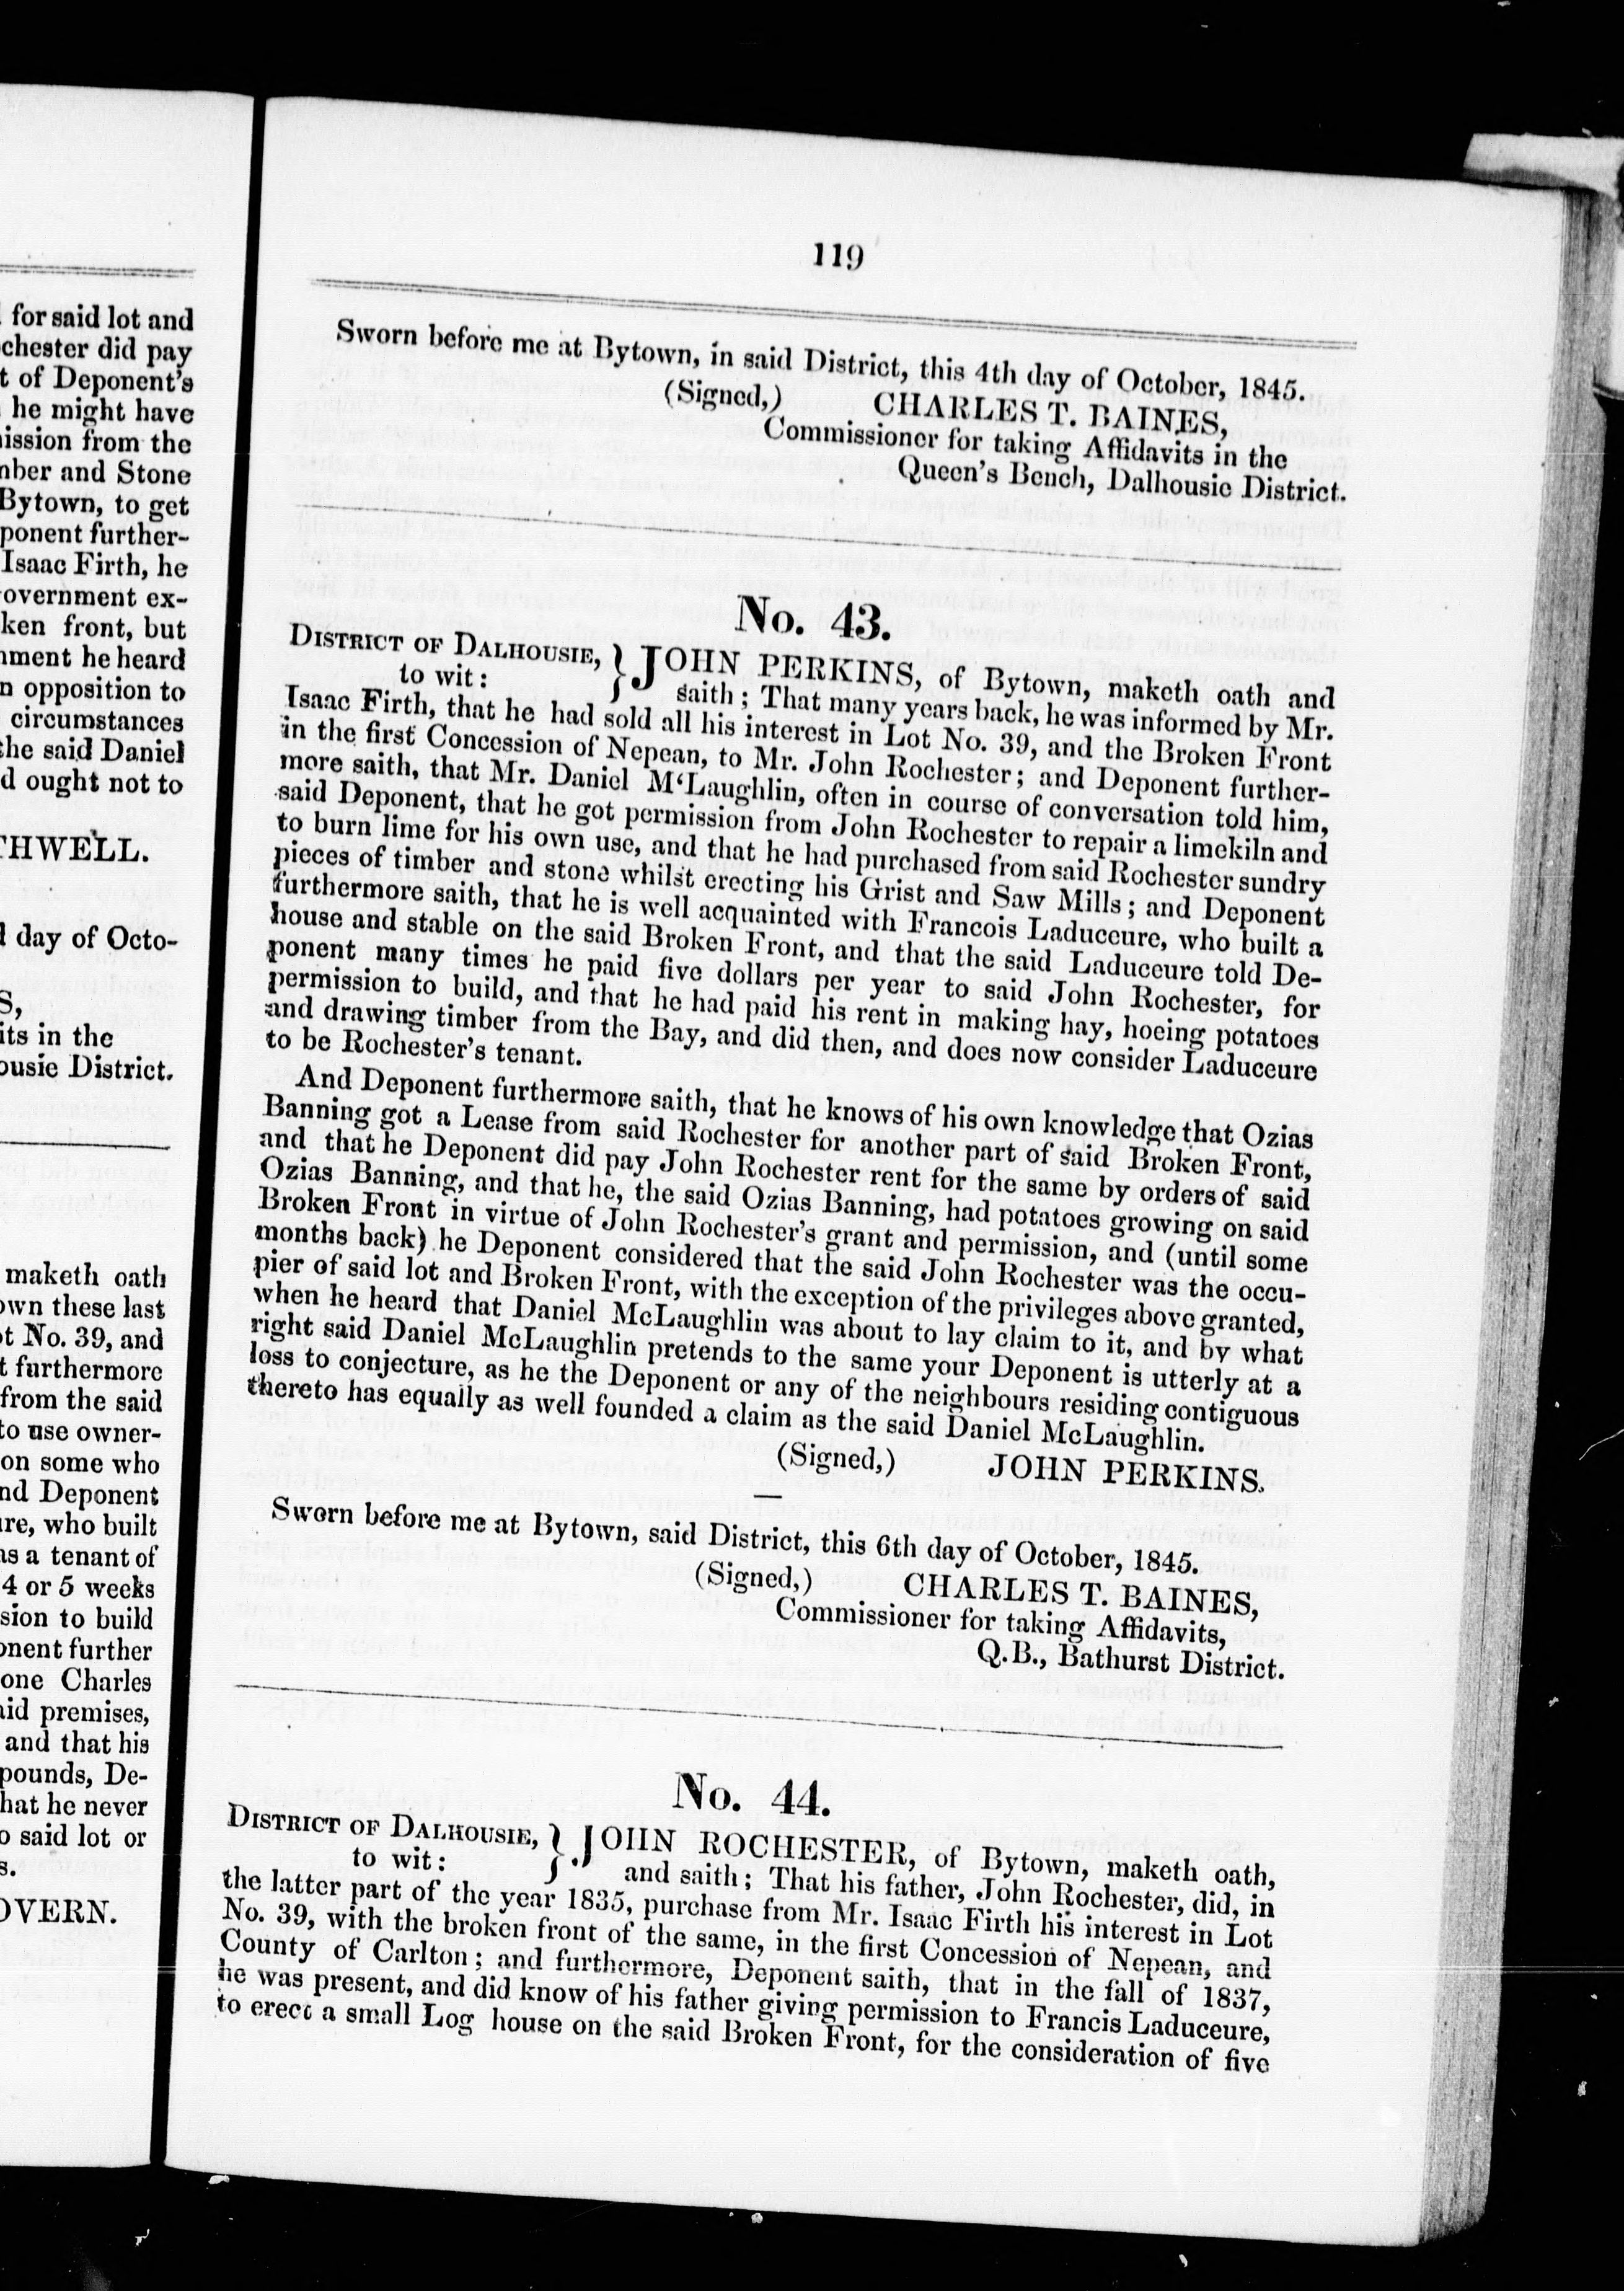 for said lot and
chester did pay
t of Deponent's
he might have
ission from the
mber and Stone
Bytown, to get
ponent further-
Isaac Firth, he
overnment ex-
ken front, but
nment he heard
n opposition to
circumstances
the said Daniel
d ought not to
THWELL.
d day of Octo-
S,
its in the
ousie District.
maketh oath
own these last
ot No. 39, and
t furthermore
from the said
to use owner-
on some who
nd Deponent
ure, who built
as a tenant of
4 or 5 weeks
sion to build
onent further
one Charles
aid premises,
and that his
pounds, De-
hat he never
o said lot or
s.
OVERN.
119
Sworn before me at Bytown, in said District, this 4th day of October, 1845.
(Signed,) CHARLES T. BAINES,
Commissioner for taking Affidavits in the
Queen's Bench, Dalhousie District.
No. 43.
DISTRICT OF DALHOUSIE, } JOHN PERKINS, of Bytown, maketh oath and
to wit: saith; That many years back, he was informed by Mr.
Isaac Firth, that he had sold all his interest in Lot No. 39, and the Broken Front
in the first Concession of Nepean, to Mr. John Rochester; and Deponent further-
more saith, that Mr. Daniel M'Laughlin, often in course of conversation told him,
said Deponent, that he got permission from John Rochester to repair a limekiln and
to burn lime for his own use, and that he had purchased from said Rochester sundry
pieces of timber and stone whilst erecting his Grist and Saw Mills; and Deponent
furthermore saith, that he is well acquainted with Francois Laduceure, who built a
house and stable on the said Broken Front, and that the said Laduceure told De-
ponent many times he paid five dollars per year to said John Rochester, for
permission to build, and that he had paid his rent in making hay, hoeing potatoes
and drawing timber from the Bay, and did then, and does now consider Laduceure
to be Rochester's tenant.
And Deponent furthermore saith, that he knows of his own knowledge that Ozias
Banning got a Lease from said Rochester for another part of said Broken Front,
and that he Deponent did pay John Rochester rent for the same by orders of said
Ozias Banning, and that he, the said Ozias Banning, had potatoes growing on said
Broken Front in virtue of John Rochester's grant and permission, and (until some
months back) he Deponent considered that the said John Rochester was the occu-
pier of said lot and Broken Front, with the exception of the privileges above granted,
when he heard that Daniel McLaughlin was about to lay claim to it, and by what
right said Daniel McLaughlin pretends to the same your Deponent is utterly at a
loss to conjecture, as he the Deponent or any of the neighbours residing contiguous
thereto has equally as well founded a claim as the said Daniel McLaughlin.
(Signed,) JOHN PERKINS.
Sworn before me at Bytown, said District, this 6th day of October, 1845.
(Signed,) CHARLES T. BAINES,
Commissioner for taking Affidavits,
Q.B., Bathurst District.
No. 44.
DISTRICT OF DALHOUSIE, } JOHN ROCHESTER, of Bytown, maketh oath,
to wit: and saith; That his father, John Rochester, did, in
the latter part of the year 1835, purchase from Mr. Isaac Firth his interest in Lot
No. 39, with the broken front of the same, in the first Concession of Nepean, and
County of Carlton; and furthermore, Deponent saith, that in the fall of 1837,
he was present, and did know of his father giving permission to Francis Laduceure,
to erect a small Log house on the said Broken Front, for the consideration of five